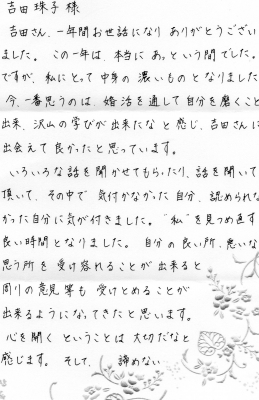 吉田 珠子 様
吉田さん、一年間お世話になり ありがとうござい
ました。 この一年は、本当に あっという間でした。
ですが、私にとって 中身の 濃いものと なりました
今、一番思うのは、婚活を通して 自分を磨くこと
出来、沢山の 学びが 出来たなと 感じ、吉田さんに
出会えて 良かったと 思っています。
いろいろな 話を 聞かせてもらったり、話を 聞いて
頂いて、その中で 気付かなかった 自分、認められな
かった 自分に 気が 付きました。 "私" を 見つめ直す
良い時間と なりました。 自分の 良い所、悪いな
思う所 を 受け容れることが 出来ると
周りの 意見 等も 受けとめることが
出来るようになってきたと思います。
心を 開く ということは 大切だなと
感じます。 そして、 諦めない